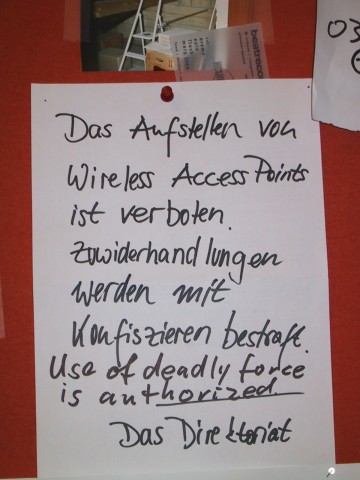 beatreco
03
Das Aufstellen von
Wireless Access Points
ist verboten.
Zuwiderhandlungen
werden mit
Konfiszieren bestraft.
Use of deadly force
is authorized
Das Direktoriat